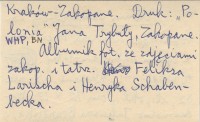 Kraków-Zakopane. Druk: „Po-
lonia" Jana Trybuły, Zakopane.
WHP, BN
Albumik fot. ze zdjęciami
zakop. i tatrz. Feliksa
Lariacha i Henryka Schaben-
becka.